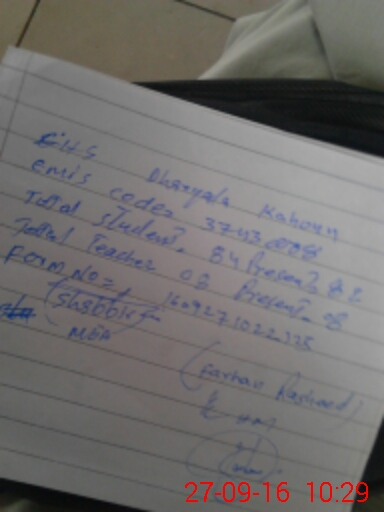 GHS Dharyala Kahoun
emis code= 37430008
Total student= 84 Present= 82
Total Teacher 08 Present= 08
Form No= 1609271022325
MEA
(Farhan Rasheed)
27-09-16 10:29